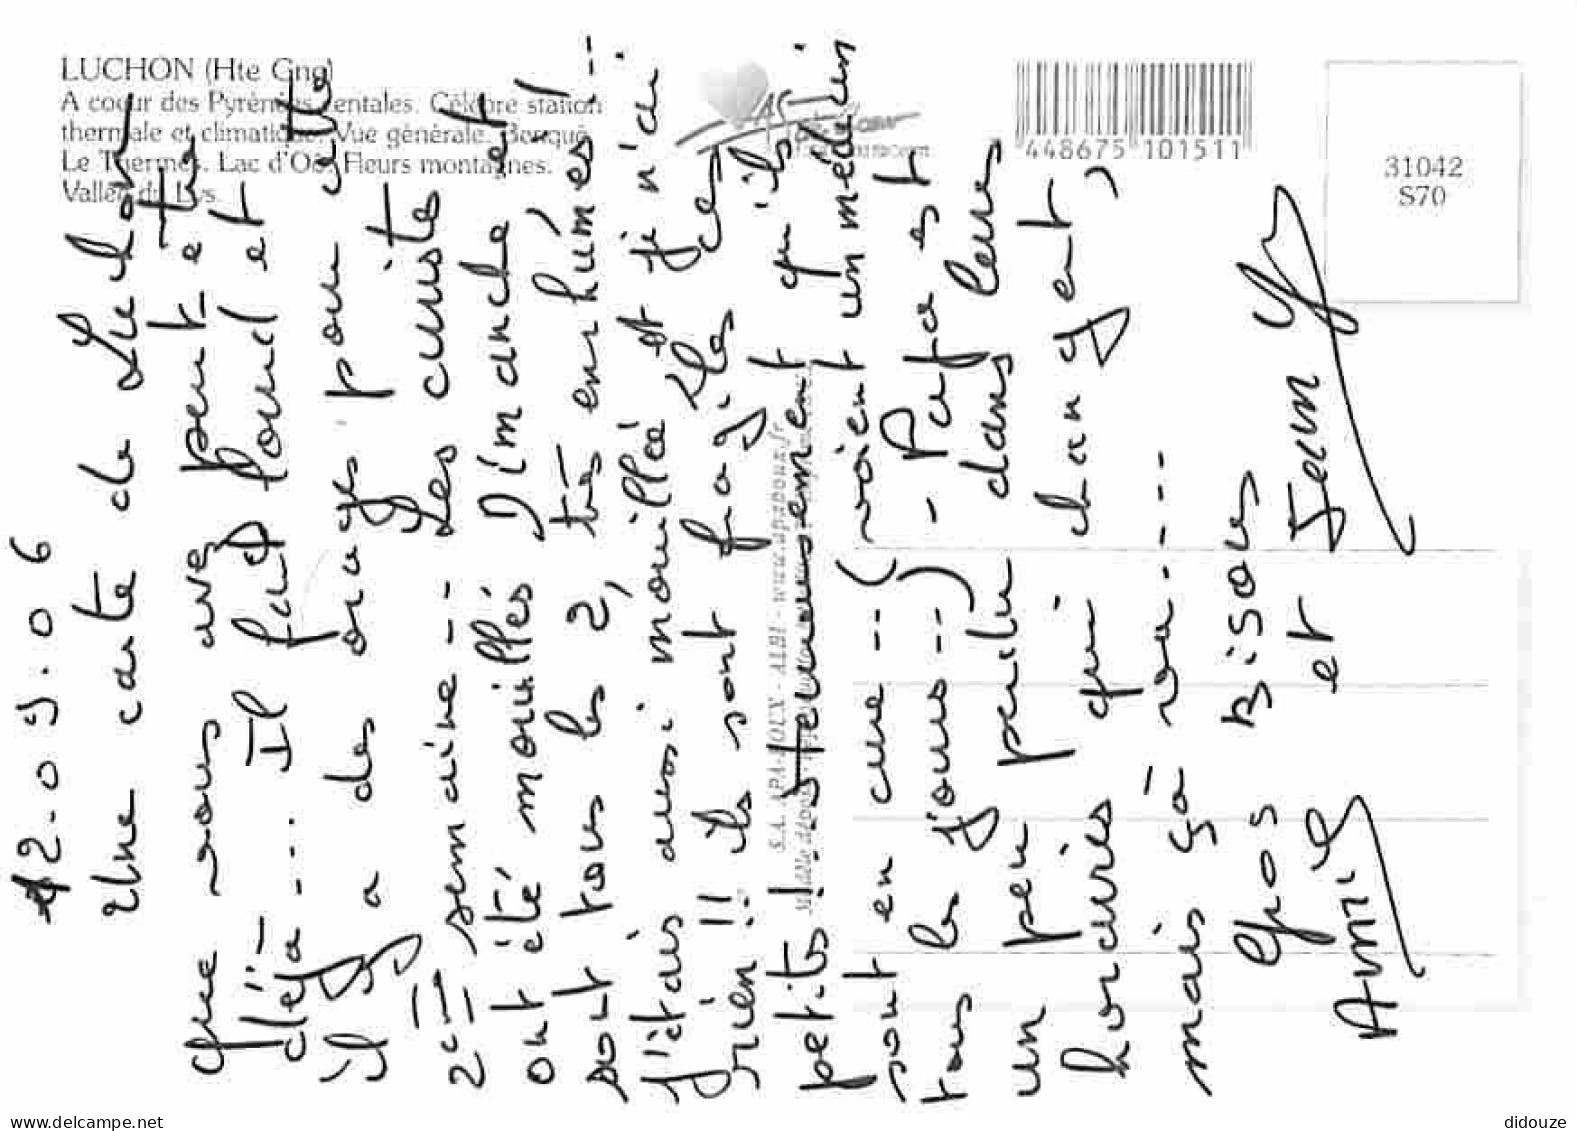 LUCHON (Hte Gne)
A coeur des Pyrénées centales. Célèbre station
thermale et climatique. Vue générale. Bouquè
Le Thermes. Lac d'Oô. Fleurs montagnes.
Vallée du Lys.
448675 101511
31042
S70
S.A. APA-POUX - ALBI - www.apapoux.fr
12.09.06
Une carte de Luchon
que vous avez peut-être
déjà... Il fait lourd et
il y a des orages pour cette
2e semaine -- Les curistes
ont été mouillés Dimanche et
sont tous les 2, très enrhumés! --
J'étais aussi mouillée et je n'ai
rien!! ils sont fragiles ces
petits!. Heureusement qu'ils
sont en cure -- (voient un médecin
tous les jours --) - Papa est
un peu perdu dans leurs
horaires qui changent,
mais ça va. ----
Gros Bisous
Annie et Jean
delcampe.net
didouze